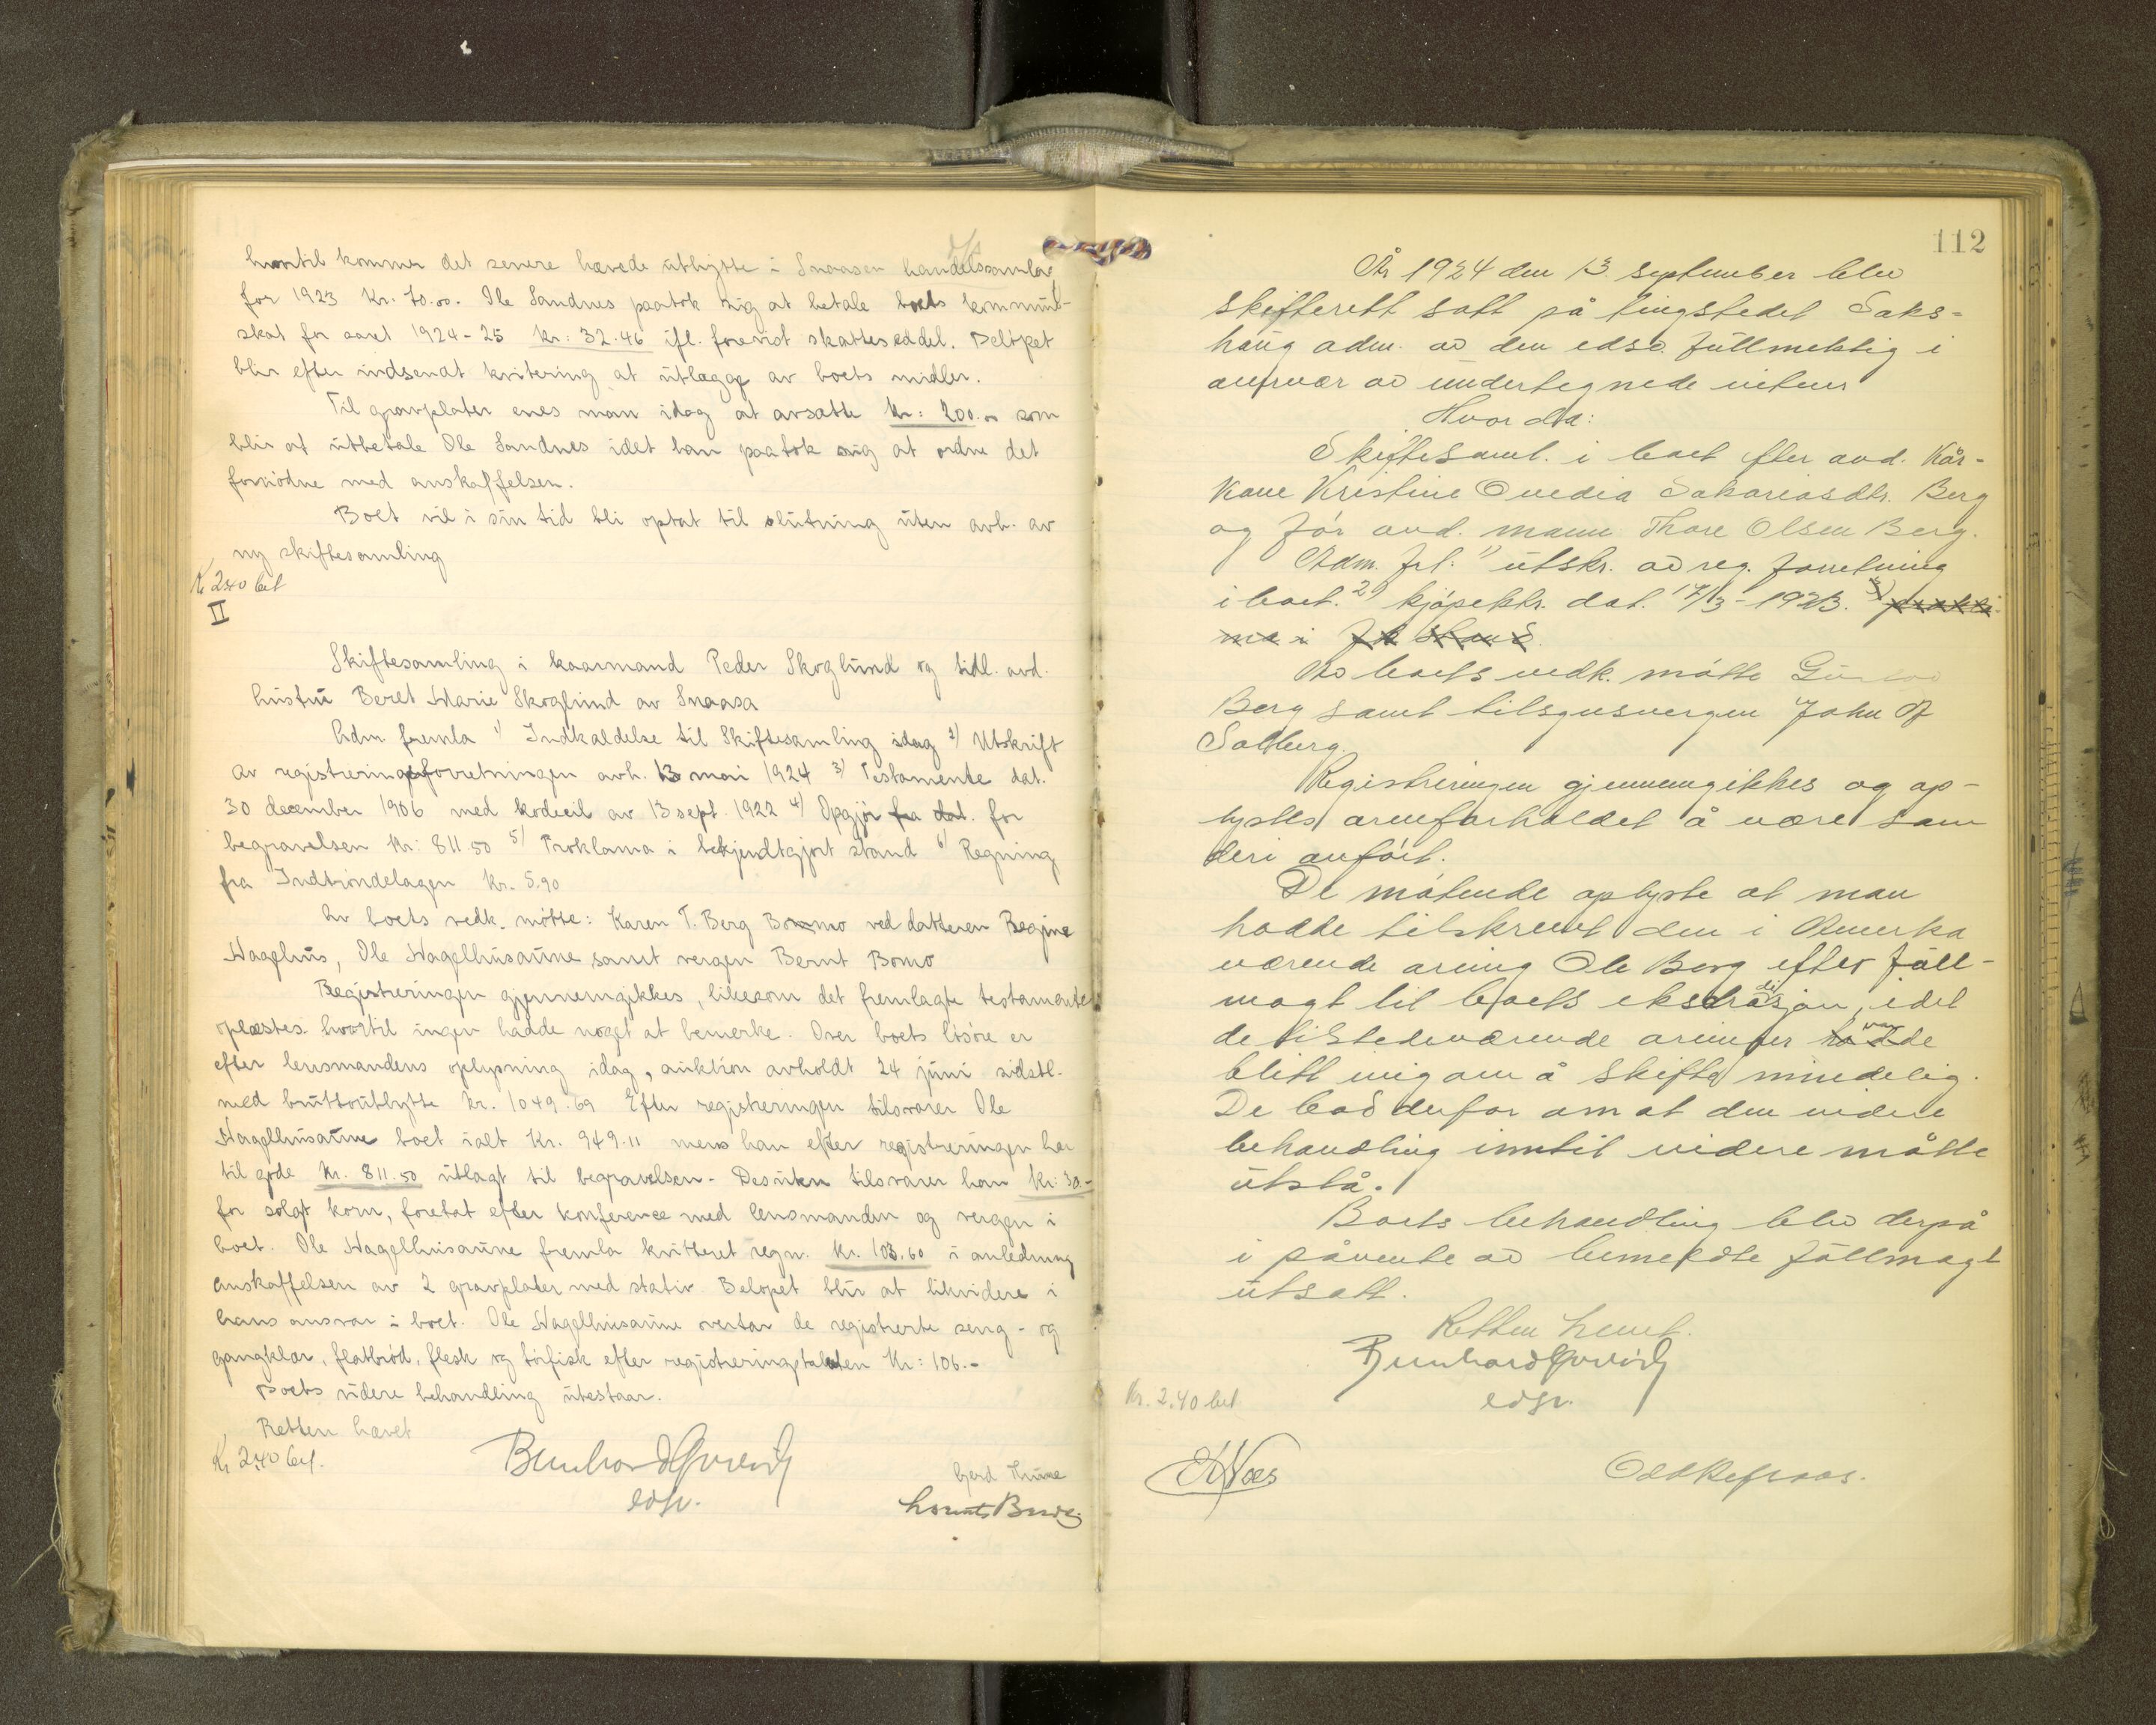 hvortil kommer det senere hævede utbytte i Snaasen handelssamlag
for 1923 Kr. 70.00. Ole Sandnes paatok sig at betale boets kommune-
skat for aaret 1924-25 Kr: 32.46 ifl. forevist skatteseddel. Beløpet
blir efter indsendt kvitering at utlægge av boets midler.
Til gravplater enes man idag at avsætte Kr: 200.00 som
blir at utbetale Ole Sandnes idet han paatok sig at ordne det
fornødne med anskaffelsen.
Boet vil i sin tid bli optat til slutning uten avh. av
ny skiftesamling
Kr 2.40 bet
II
Skiftesamling i kaarmand Peder Skoglund og tidl. avd.
hustru Beret Marie Skoglund av Snaasa
Adm. fremla 1) Indkaldelse til Skiftesamling idag 2) Utskrift
av registreringsforretningen avh. 13 mai 1924 3) Testamente dat.
30 december 1906 med kodicil av 13 sept. 1922 4) Opgjør fra dat. for
begravelsen Kr: 811.50 5) Proklama i bekjendtgjort stand 6) Regning
fra Indtrøndelagen Kr. 5.90
Av boets vedk. møtte: Karen T. Berg Bomo ved datteren Regine
Hagelhus, Ole Hagelhusaune samt vergen Bernt Bomo
Registreringen gjennemgikkes, likesom det fremlagte testamente
oplæstes hvortil ingen hadde noget at bemerke. Over boets løsøre er
efter lensmandens oplysning idag, auktion avholdt 24 juni sidstl.
med bruttoutbytte Kr. 1049.69 Efter registreringen tilsvarer Ole
Hagelhusaune boet ialt Kr. 949.11 mens han efter registreringen har
til gode Kr. 811.50 utlagt til begravelsen. Desuten tilsvarer han Kr: 30.-
for solgt korn, foretat efter konference med lensmanden og vergen i
boet. Ole Hagelhusaune fremla kvitteret regn. Kr. 103.60 i anledning
anskaffelsen av 2 gravplater med stativ. Beløpet blir at likvidere i
hans ansvar i boet. Ole Hagelhusaune overtar de registrerte seng- og
gangklær, flatbrød, flesk og tørfisk efter registreringstaksten Kr: 106.-
Boets videre behandling utestaar.
Retten hævet
Kr 2.40 bet.
edsv.
Gjerd Thune
112
År 1924 den 13. september blev
skifterett satt på tingstedet Saks-
haug adm. av den edsv. fullmektig i
anrvær av undertegnede vitner
Hvor da:
Skiftesaml. i boet efter avd. Kår-
kone Kristine Ovedia Sakariasdtr. Berg
og før avd. mann Thore Olsen Berg.
Adm. frl. 1) utskr. av reg. forretning
i boet. 2) kjøpektr. dat. 17/3 - 1923. 3) prokla
ma i
Av boets vedk. møtte
Berg samt tilsynsvergen John
Solberg.
Registreringen gjennemgikkes og op-
lystes arveforholdet å være som
deri anført.
De møtende oplyste at man
hadde tilskrevet den i Amerika
værende arving Ole Berg efter full-
magt til boets ekstradisjon, idet
de tilstedeværende arvinger hadde var
blitt enig om å skifte mindelig.
De bad derfor om at den videre
behandling inntil videre måtte
utstå.
Boets behandling blev derpå
i påvente av bemeldte fullmagt
utsatt.
Retten hevet.
edsv.
Kr. 2.40 bet